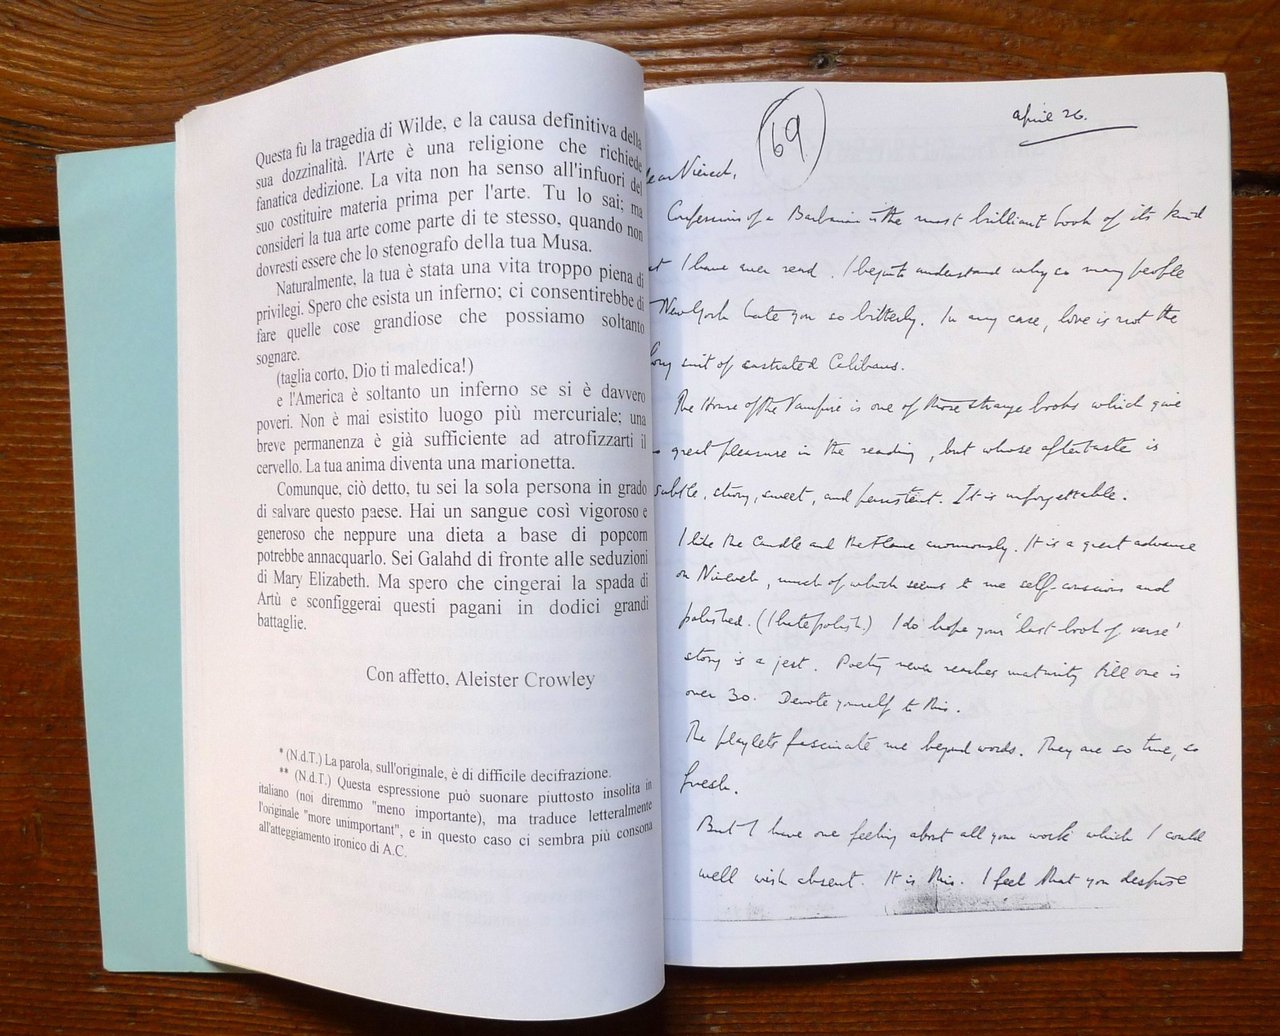 Questa fu la tragedia di Wilde, e la causa definitiva della
sua dozzinalità. l'Arte è una religione che richiede
fanatica dedizione. La vita non ha senso all'infuori del
suo costituire materia prima per l'arte. Tu lo sai; ma
consideri la tua arte come parte di te stesso, quando non
dovresti essere che lo stenografo della tua Musa.
Naturalmente, la tua è stata una vita troppo piena di
privilegi. Spero che esista un inferno; ci consentirebbe di
fare quelle cose grandiose che possiamo soltanto
sognare.
(taglia corto, Dio ti maledica!)
e l'America è soltanto un inferno se si è davvero
poveri. Non è mai esistito luogo più mercuriale; una
breve permanenza è già sufficiente ad atrofizzarti il
cervello. La tua anima diventa una marionetta.
Comunque, ciò detto, tu sei la sola persona in grado
di salvare questo paese. Hai un sangue così vigoroso e
generoso che neppure una dieta a base di popcorn
potrebbe annacquarlo. Sei Galahd di fronte alle seduzioni
di Mary Elizabeth. Ma spero che cingerai la spada di
Artù e sconfiggerai questi pagani in dodici grandi
battaglie.
Con affetto, Aleister Crowley
* (N.d.T.) La parola, sull'originale, è di difficile decifrazione.
** (N.d.T.) Questa espressione può suonare piuttosto insolita in
italiano (noi diremmo "meno importante), ma traduce letteralmente
l'originale "more unimportant", e in questo caso ci sembra più consona
all'atteggiamento ironico di A.C.
69
April 26.
ear Viereck,
Confessions of a Barbarian is the most brilliant book of its kind
I have ever read. I begin to understand why so many people
New York hate you so bitterly. In any case, love is not the
long suit of castrated Calibans.
The House of the Vampire is one of those strange books which give
great pleasure in the reading, but whose aftertaste is
subtle, strong, sweet, and persistent. It is unforgettable.
I like the Candle and the Flame enormously. It is a great advance
on Nineveh, much of which seems to me self-conscious and
polished. (I hate polish.) I do hope your 'last book of verse'
story is a jest. Poetry never reaches maturity till one is
over 30. Devote yourself to this.
The playlets fascinate me beyond words. They are so true, so
fresh.
But I have one feeling about all your work which I could
well wish absent. It is this. I feel that you despise